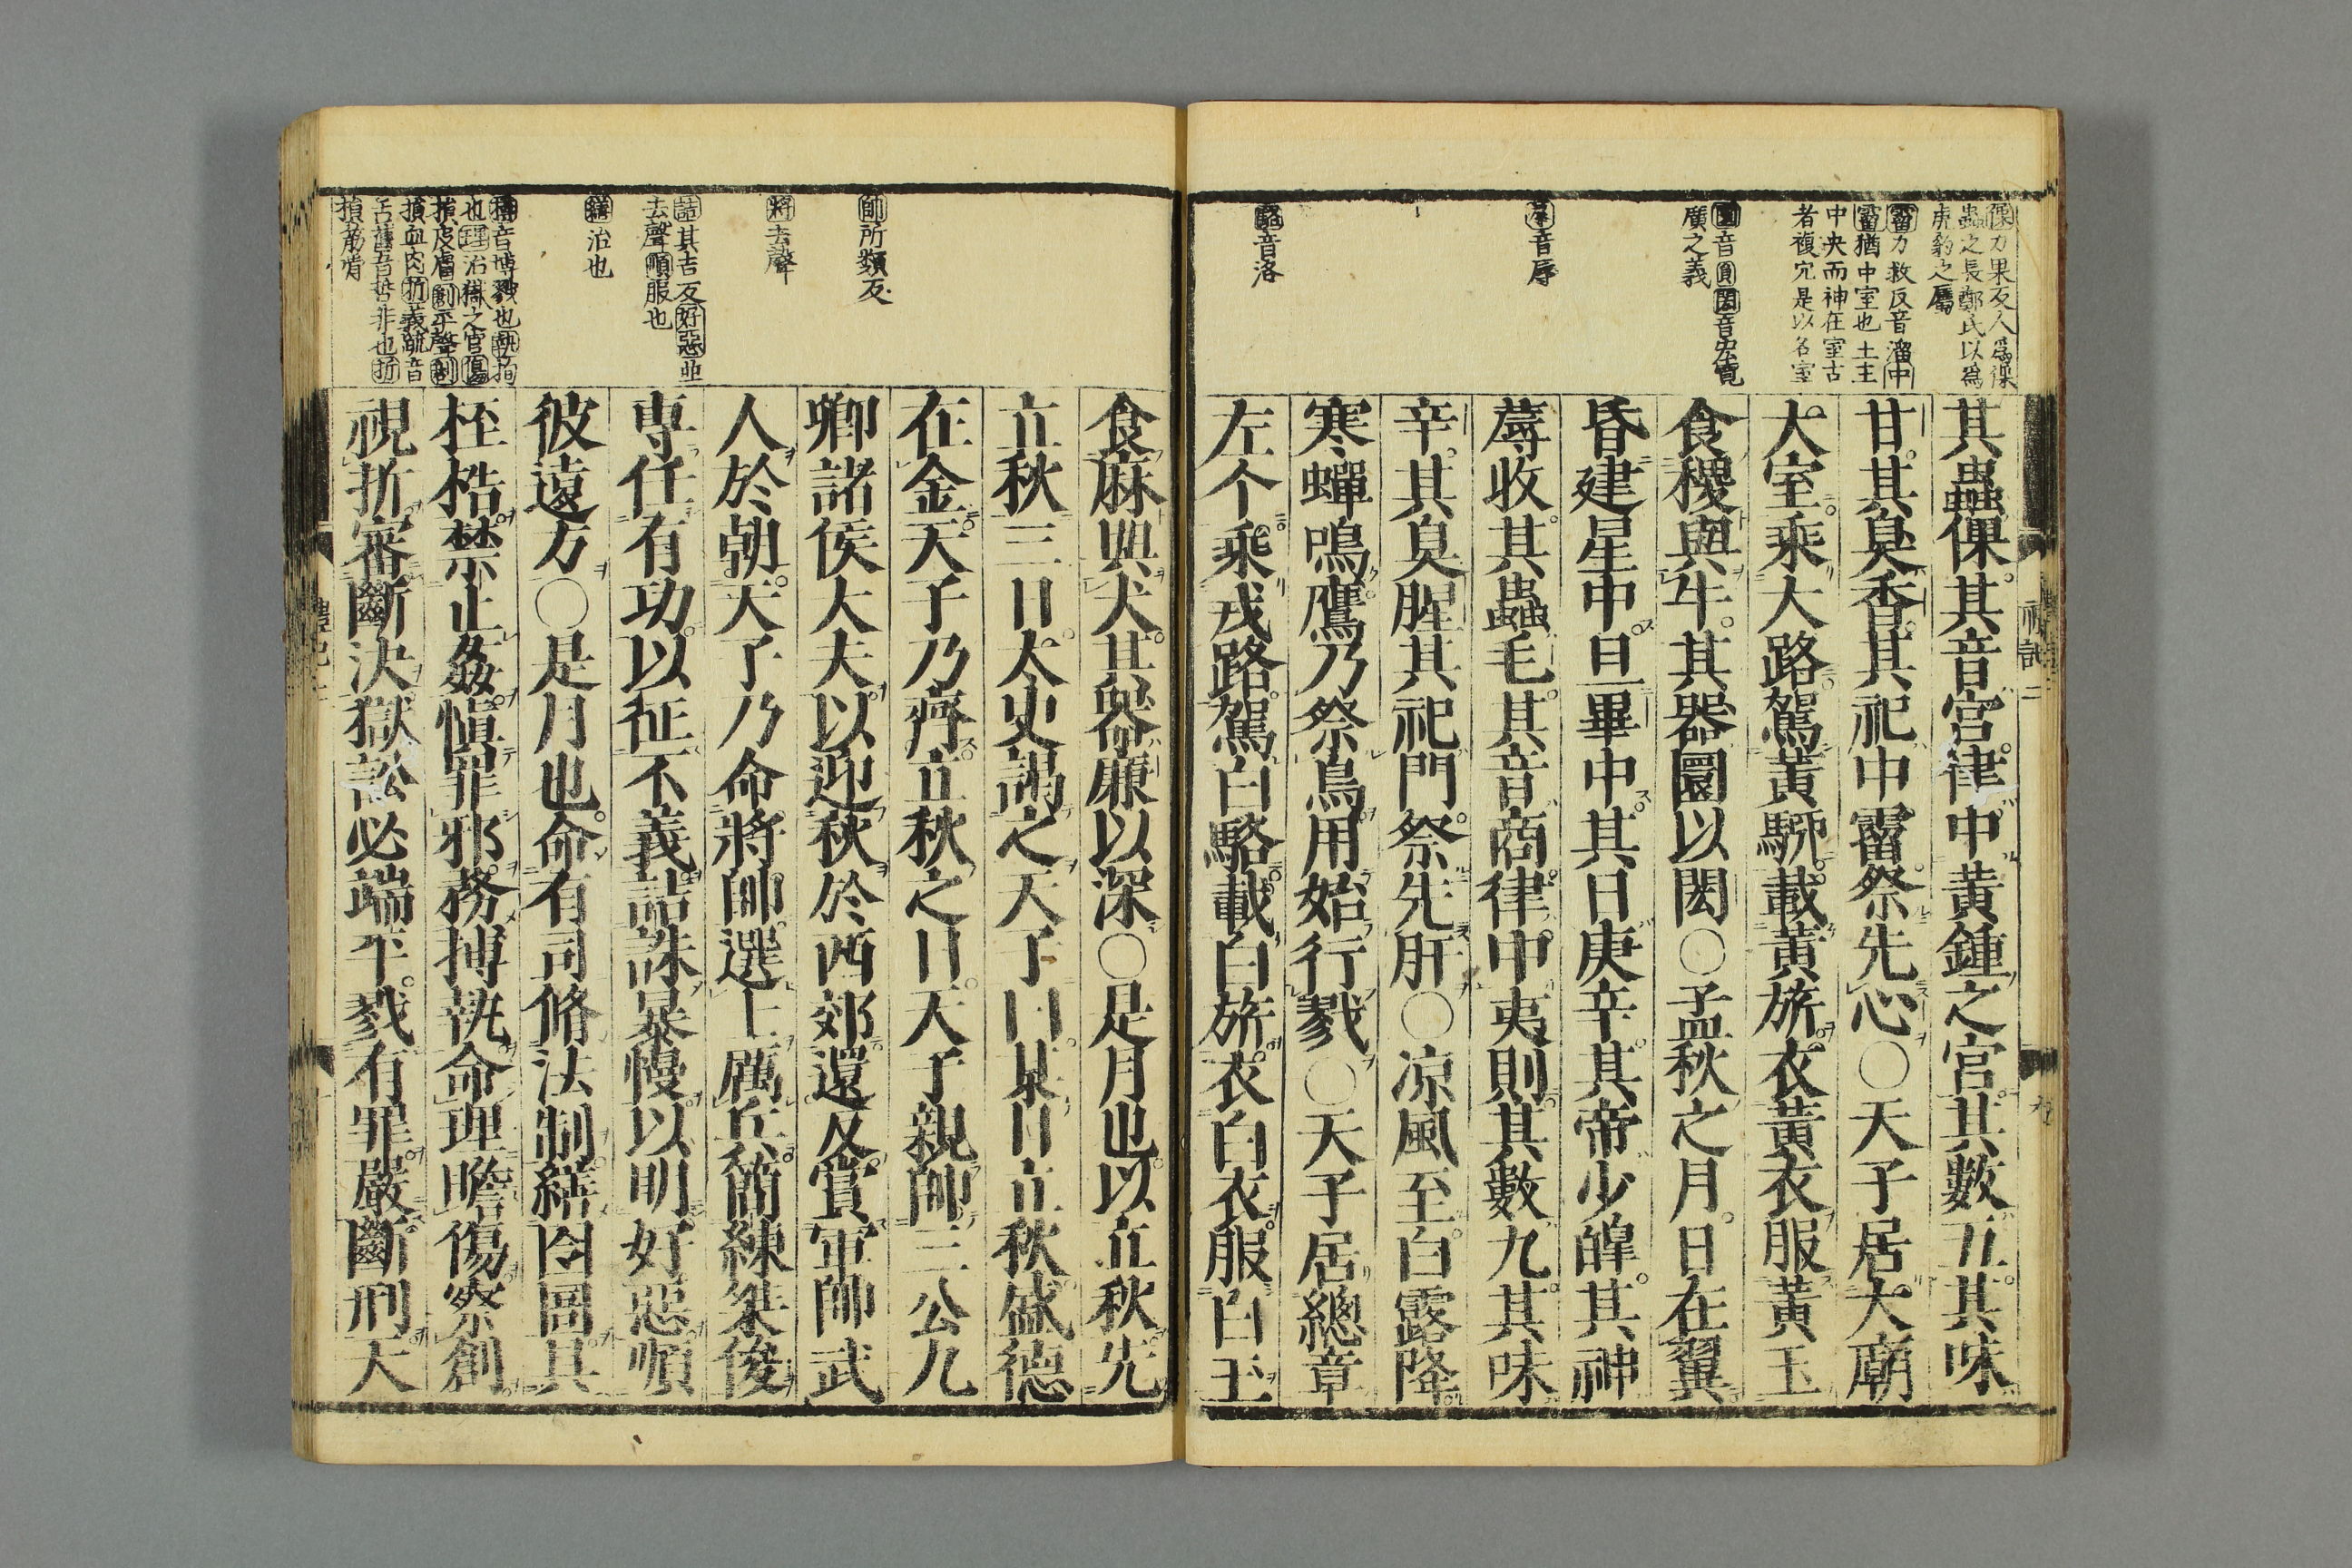 倮力果反人爲倮
蟲之長鄭氏以爲
虎豹之屬
霤力救反音溜中
霤猶中室也土主
中央而神在室古
者複穴是以名室
圜音圓閎音宏寬
廣之義
蓐音辱
駱音洛
其蟲倮其音宮律中黃鍾之宮其數五其味
甘其臭香其祀中霤祭先心〇天子居大廟
大室乘大路駕黃騮載黃旂衣黃衣服黃玉
食稷與牛其器圜以閎〇孟秋之月日在翼
昏建星中旦畢中其日庚辛其帝少皥其神
蓐收其蟲毛其音商律中夷則其數九其味
辛其臭腥其祀門祭先肝〇凉風至白露降
寒蟬鳴鷹乃祭鳥用始行戮〇天子居總章
左个乘戎路駕白駱載白旂衣白衣服白玉
禮記二
九
帥所類反
將去聲
詰其吉反好惡並
去聲順服也
繕治也
搏音博戮也執拘
也理治獄之官傷
損皮膚創平聲創
損血肉折義疏音
舌舊音哲非也折
損筋骨
食麻與犬其器廉以深〇是月也以立秋先
立秋三日大史謁之天子曰某日立秋盛德
在金天子乃齊立秋之日天子親帥三公九
卿諸侯大夫以迎秋於西郊還反賞軍帥武
人於朝天子乃命將帥選士厲兵簡練桀俊
專任有功以征不義詰誅暴慢以明好惡順
彼遠方〇是月也命有司脩法制繕囹圄具
桎梏禁止姦愼罪邪務搏執命理瞻傷察創
視折審斷決獄訟必端平戮有罪嚴斷刑天
禮記二